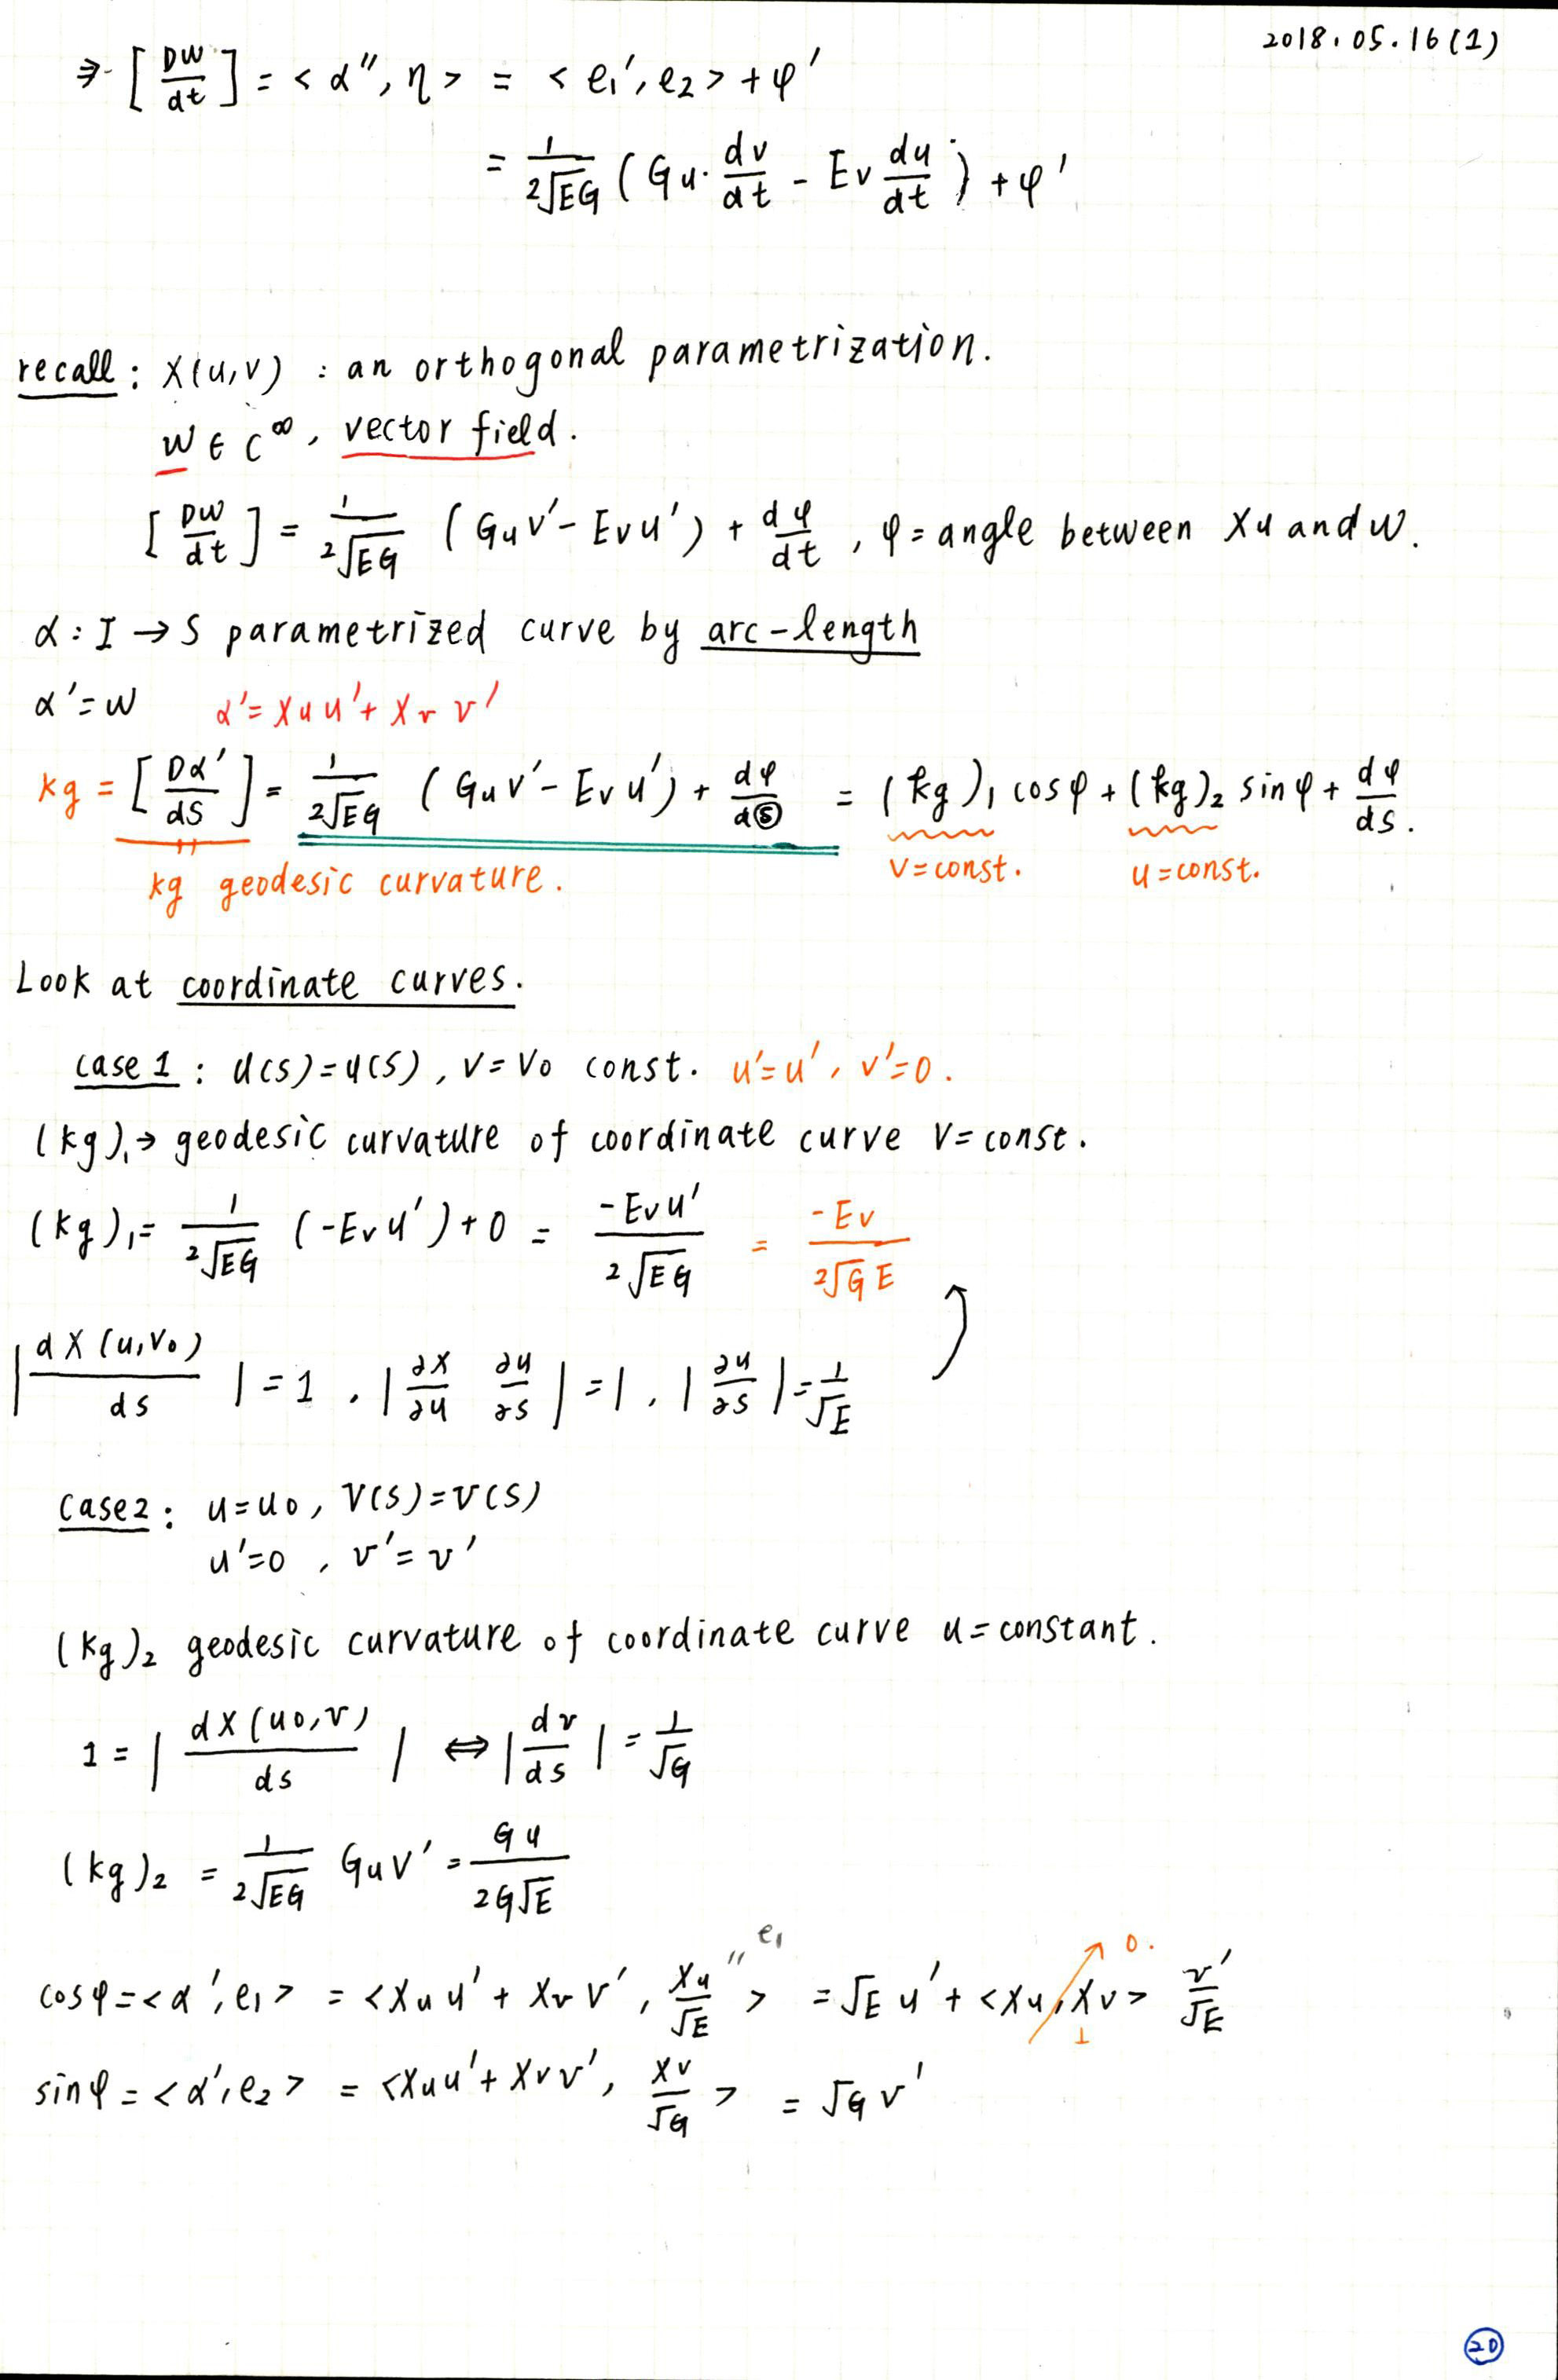 2018.05.16(1)
⇒ [Dw/dt] = <α'', η> = <e₁', e₂> + φ'
= 1/(2√EG) (Gu · dv/dt - Ev du/dt) + φ'
recall : X(u,v) : an orthogonal parametrization.
w ∈ C^∞, vector field.
[Dw/dt] = 1/(2√EG) (Gu v' - Ev u') + dφ/dt , φ = angle between Xu and w.
α : I → S parametrized curve by arc-length
α' = w   α' = Xu u' + Xv v'
kg = [Dα'/ds] = 1/(2√EG) (Gu v' - Ev u') + dφ/ds = (kg)₁ cosφ + (kg)₂ sinφ + dφ/ds.
v = const.   u = const.
kg geodesic curvature.
Look at coordinate curves.
case 1 : u(s) = u(s) , v = v₀ const. u' = u' , v' = 0.
(kg)₁ → geodesic curvature of coordinate curve v = const.
(kg)₁ = 1/(2√EG) (-Ev u') + 0 = -Ev u'/(2√EG) = -Ev/(2√G E)
|dX(u,v₀)/ds| = 1 . |∂X/∂u ∂u/∂s| = 1 . |∂u/∂s| = 1/√E
case2 : u = u₀ , v(s) = v(s)
u' = 0 , v' = v'
(kg)₂ geodesic curvature of coordinate curve u = constant.
1 = |dX(u₀,v)/ds| ⇔ |dv/ds| = 1/√G
(kg)₂ = 1/(2√EG) Gu v' = Gu/(2G√E)
e₁   0.
cosφ = <α', e₁> = <Xu u' + Xv v', Xu/√E> = √E u' + <Xu, Xv> v'/√E
⊥
sinφ = <α', e₂> = <Xu u' + Xv v', Xv/√G> = √G v'
20